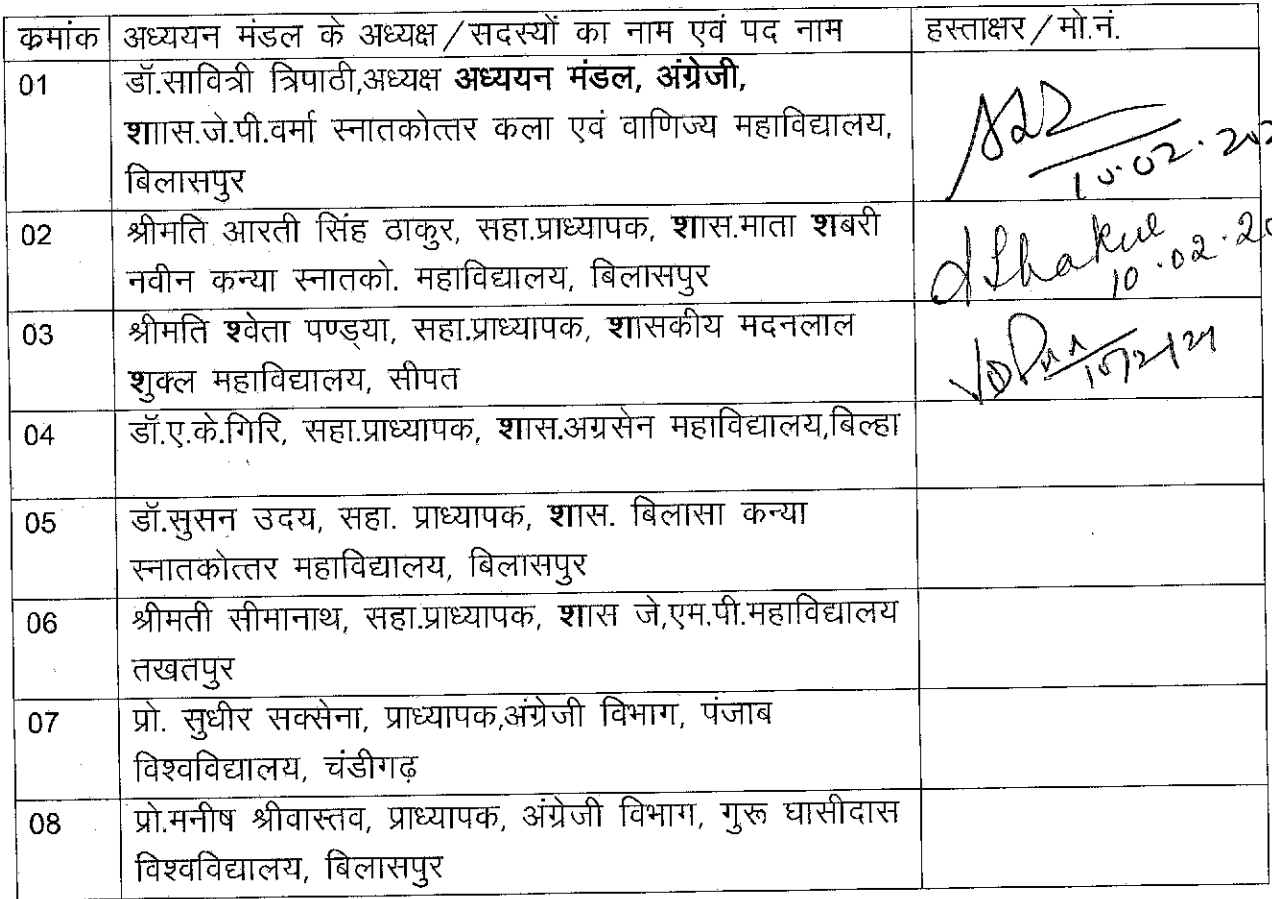 क्रमांक अध्ययन मंडल के अध्यक्ष/सदस्यों का नाम एवं पद नाम हस्ताक्षर/मो.नं.
01 डॉ.सावित्री त्रिपाठी,अध्यक्ष अध्ययन मंडल, अंग्रेजी,
शाास.जे.पी.वर्मा स्नातकोत्तर कला एवं वाणिज्य महाविद्यालय,
बिलासपुर
10.02.202
02 श्रीमति आरती सिंह ठाकुर, सहा.प्राध्यापक, शास.माता शबरी
नवीन कन्या स्नातको. महाविद्यालय, बिलासपुर
Thakur
10.02.20
03 श्रीमति श्वेता पण्ड्या, सहा.प्राध्यापक, शासकीय मदनलाल
शुक्ल महाविद्यालय, सीपत
10/2/21
04 डॉ.ए.के.गिरि, सहा.प्राध्यापक, शास.अग्रसेन महाविद्यालय,बिल्हा
05 डॉ.सुसन उदय, सहा. प्राध्यापक, शास. बिलासा कन्या
स्नातकोत्तर महाविद्यालय, बिलासपुर
06 श्रीमती सीमानाथ, सहा.प्राध्यापक, शास जे,एम.पी.महाविद्यालय
तखतपुर
07 प्रो. सुधीर सक्सेना, प्राध्यापक,अंग्रेजी विभाग, पंजाब
विश्वविद्यालय, चंडीगढ़
08 प्रो.मनीष श्रीवास्तव, प्राध्यापक, अंग्रेजी विभाग, गुरू घासीदास
विश्वविद्यालय, बिलासपुर